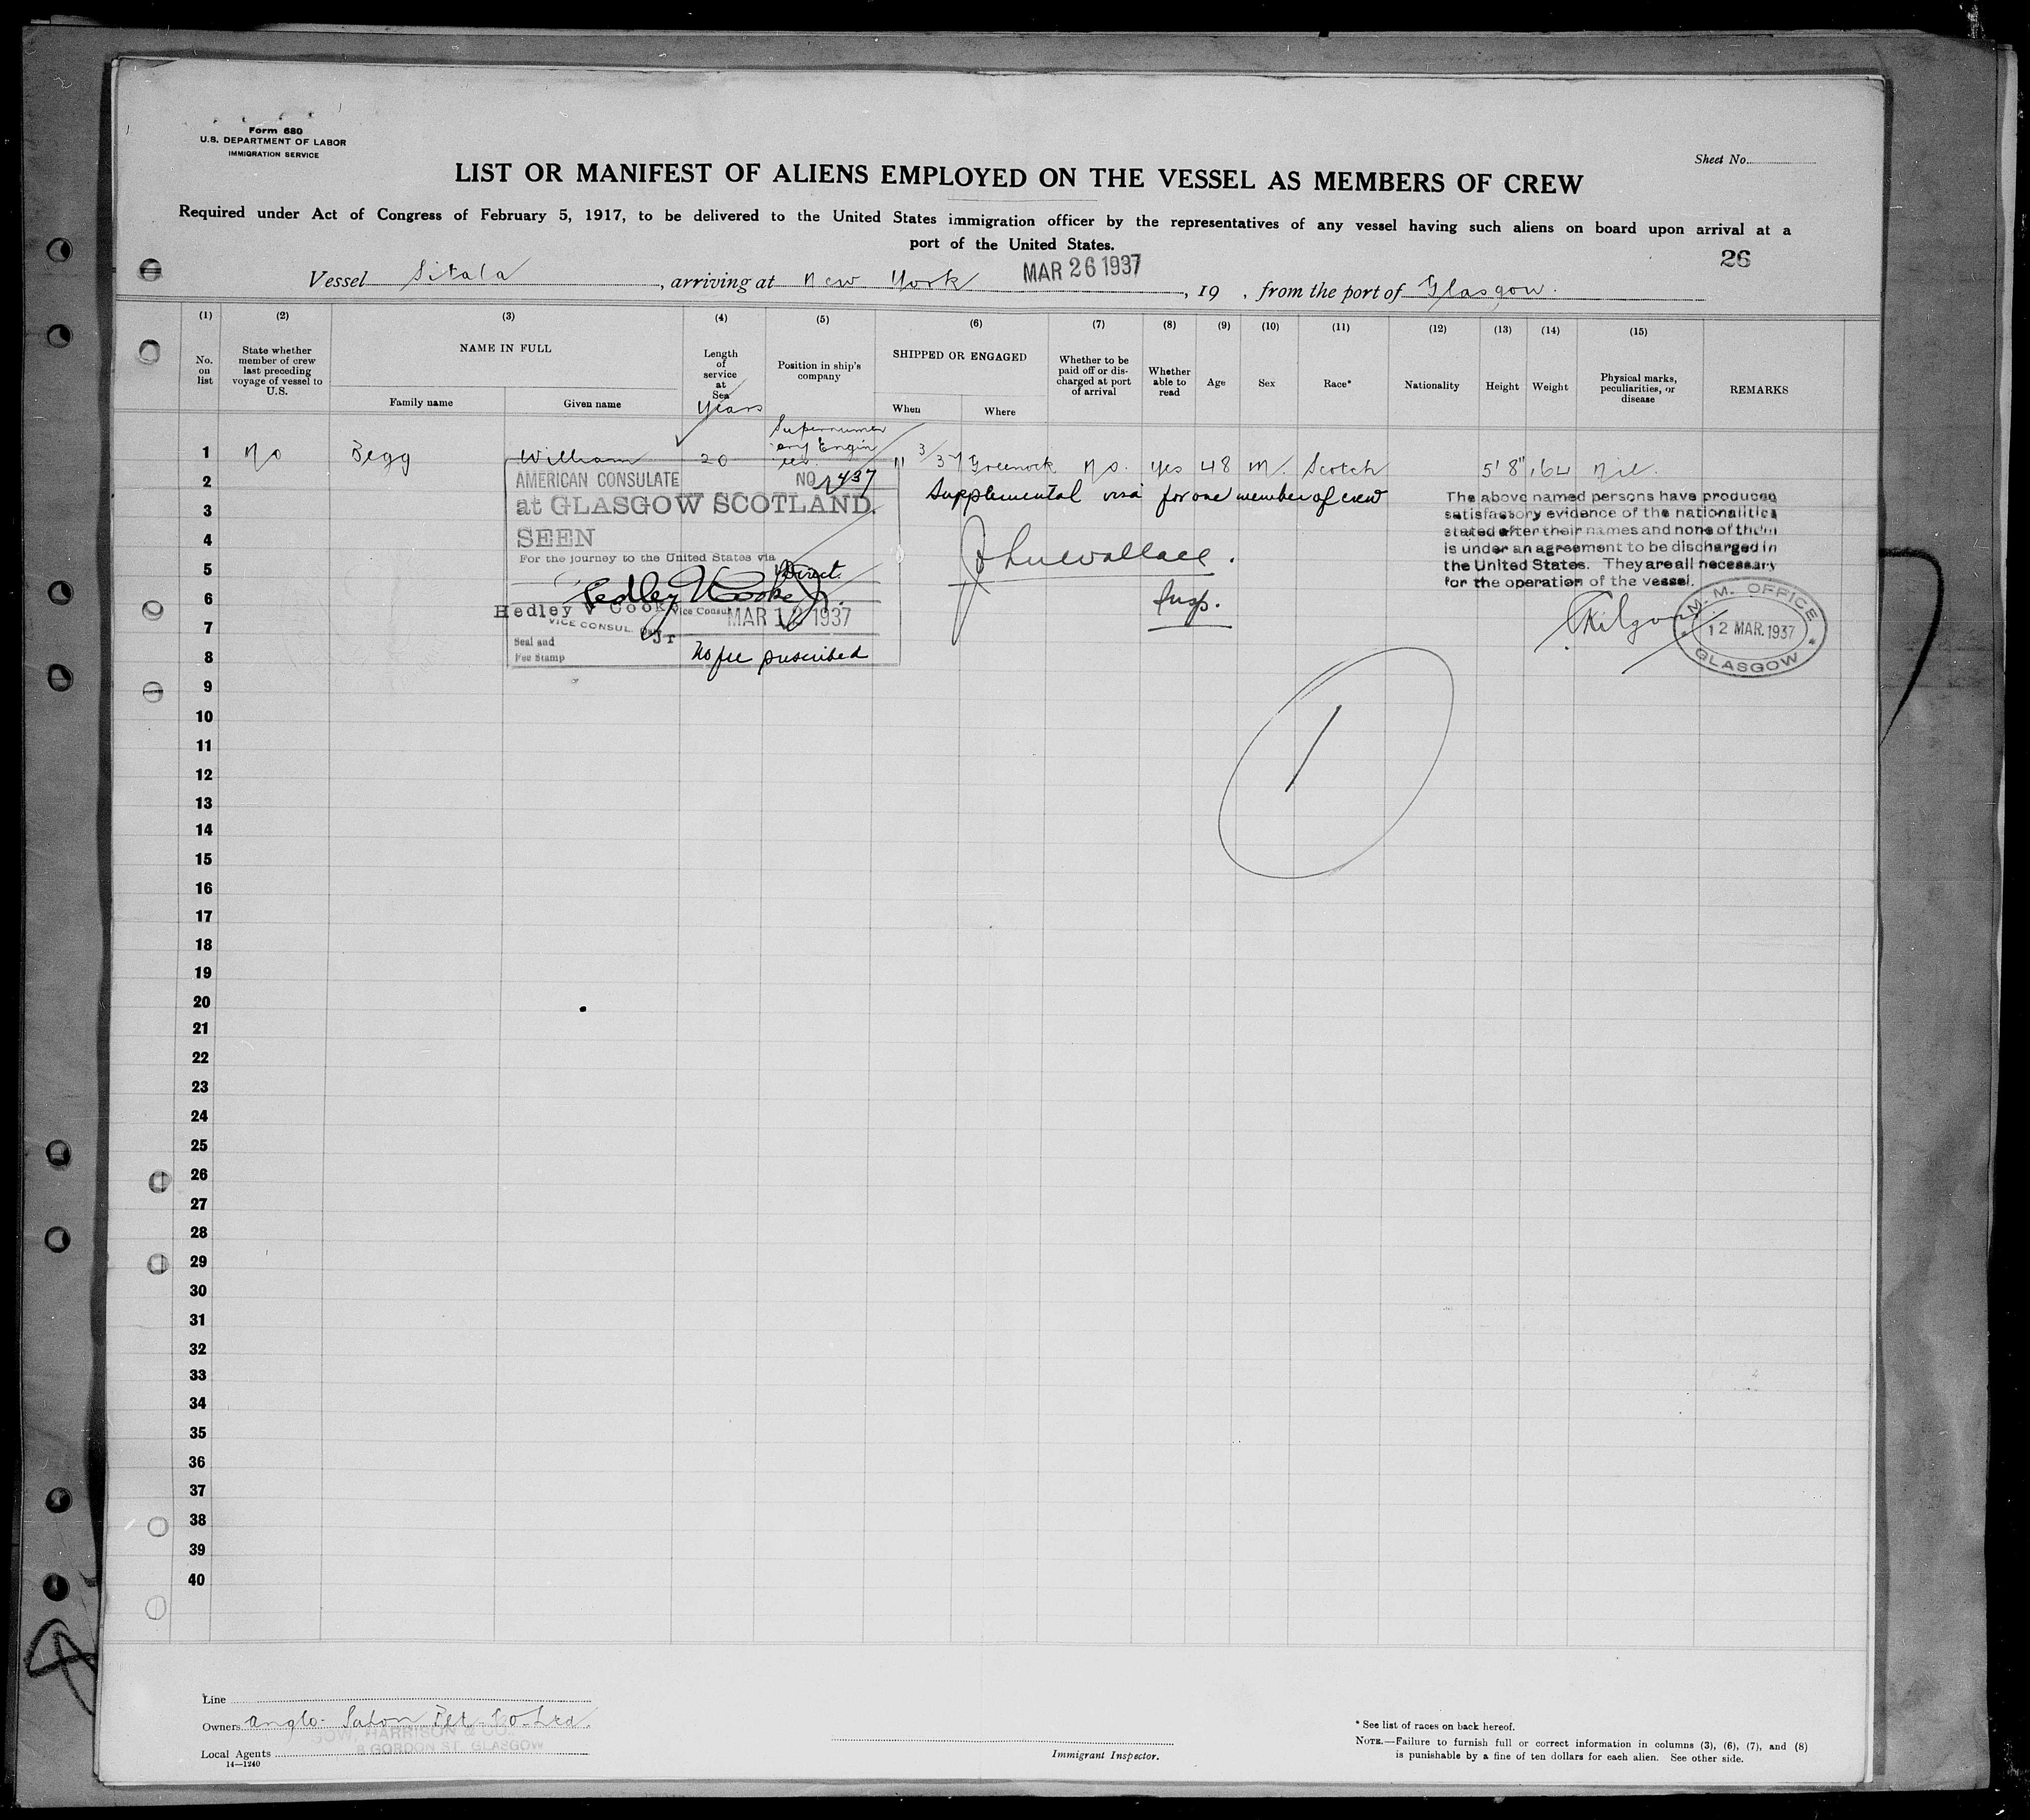 Form 680
U.S. DEPARTMENT OF LABOR
IMMIGRATION SERVICE
Sheet No.
LIST OR MANIFEST OF ALIENS EMPLOYED ON THE VESSEL AS MEMBERS OF CREW
Required under Act of Congress of February 5, 1917, to be delivered to the United States immigration officer by the representatives of any vessel having such aliens on board upon arrival at a
port of the United States.
26
Vessel Sitala, arriving at New York MAR 26 1937, 19 , from the port of Glasgow.
(1) (2) (3) (4) (5) (6) (7) (8) (9) (10) (11) (12) (13) (14) (15)
No. on list
State whether member of crew last preceding voyage of vessel to U.S.
NAME IN FULL
Family name
Given name
Length of service at Sea
Years
Position in ship's company
SHIPPED OR ENGAGED
When
Where
Whether to be paid off or discharged at port of arrival
Whether able to read
Age
Sex
Race*
Nationality
Height
Weight
Physical marks, peculiarities, or disease
REMARKS
1 No Begg William 20 Supernumerary Engineer 11/3/37 Greenock No. Yes 48 M. Scotch 5'8" 164 Nil.
2
3
4
5
6
7
8
9
10
11
12
13
14
15
16
17
18
19
20
21
22
23
24
25
26
27
28
29
30
31
32
33
34
35
36
37
38
39
40
AMERICAN CONSULATE NO 1437
at GLASGOW SCOTLAND.
SEEN
For the journey to the United States via
Direct.
Hedley V Cooke Jr.
Hedley V Cooke Jr
Vice Consul
VICE CONSUL
MAR 12 1937
Seal and
Fee Stamp
No fee prescribed
Supplemental visa for one member of crew
John Wallace.
Insp.
The above named persons have produced
satisfactory evidence of the nationalities
stated after their names and none of them
is under an agreement to be discharged in
the United States. They are all necessary
for the operation of the vessel.
M. M. OFFICE
12 MAR. 1937
GLASGOW
1
Line
Owners Anglo-Saxon Pet. Co. Ltd.
HARRISON & CO.
GORDON ST. GLASGOW
Local Agents
14—1240
Immigrant Inspector.
* See list of races on back hereof.
NOTE.—Failure to furnish full or correct information in columns (3), (6), (7), and (8)
is punishable by a fine of ten dollars for each alien. See other side.